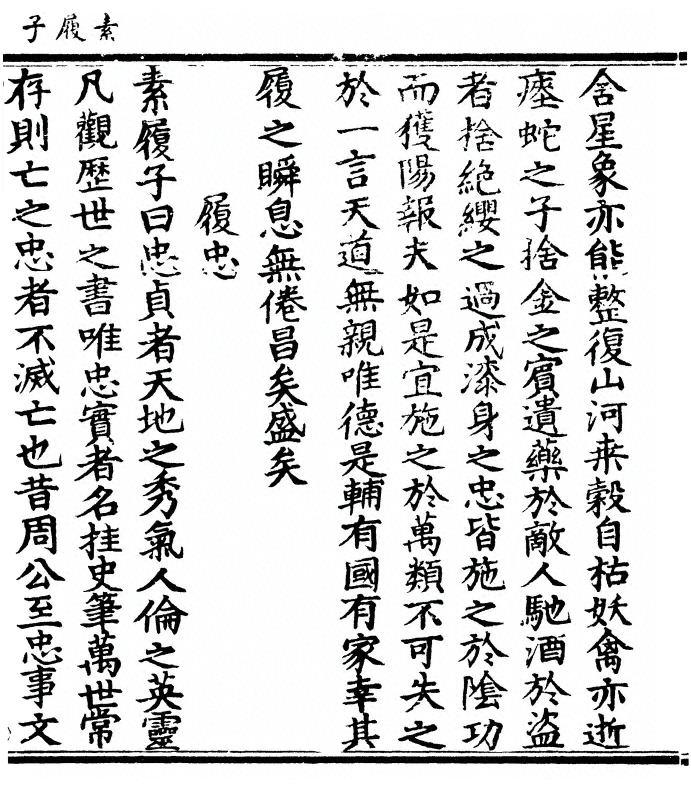 素履子
舍星象亦能整復山河桒榖自枯妖禽亦逝
瘞蛇之子捨金之賓遺藥於敵人馳酒於盜
者捨絶纓之過成漆身之忠皆施之於陰功
而獲陽報夫如是宜施之於萬類不可失之
於一言天道無親唯德是輔有國有家幸其
履之瞬息無倦昌矣盛矣
履忠
素履子曰忠貞者天地之秀氣人倫之英靈
凡觀歷世之書唯忠實者名挂史筆萬世常
存則亡之忠者不滅亡也昔周公至忠事文